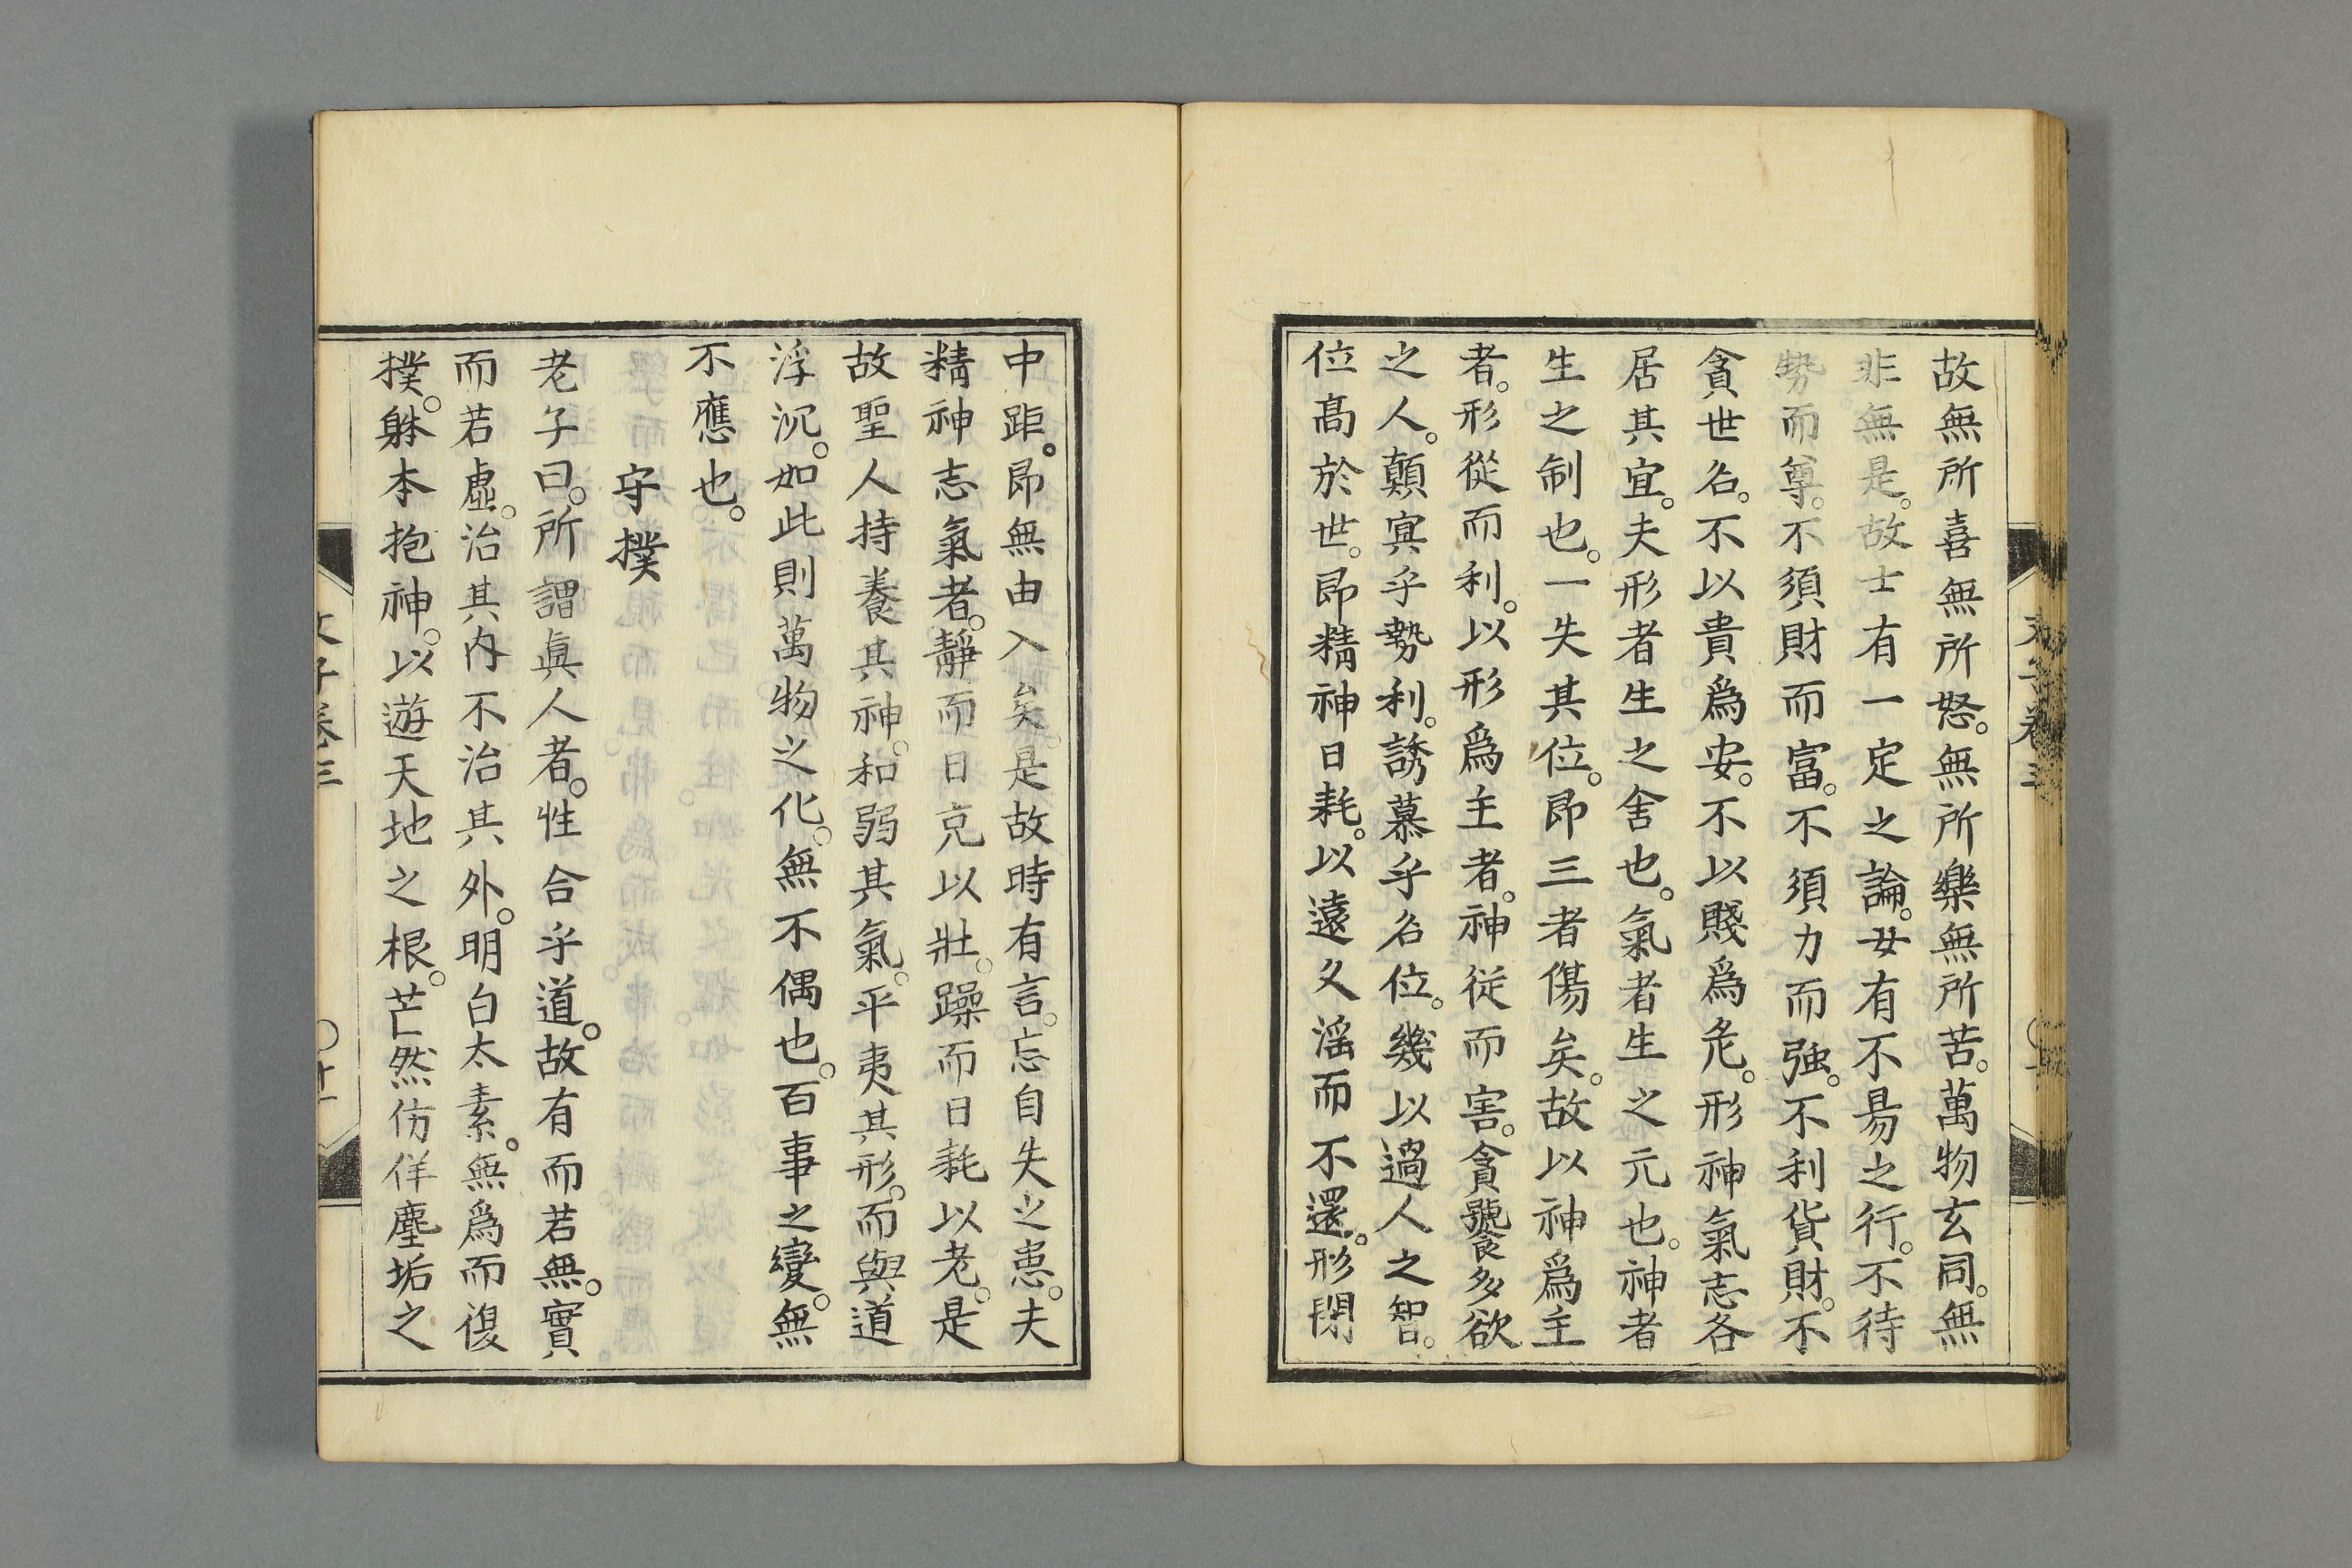 故無所喜無所怒。無所樂無所苦。萬物玄同。無
非無是。故士有一定之論。女有不易之行。不待
勢而尊。不須財而富。不須力而強。不利貨財。不
貪世名。不以貴爲安。不以賤爲危。形神氣志各
居其宜。夫形者生之舍也。氣者生之元也。神者
生之制也。一失其位。即三者傷矣。故以神爲主
者。形從而利。以形爲主者。神從而害。貪饕多欲
之人。顛冥乎勢利。誘慕乎名位。幾以過人之智。
位高於世。即精神日耗。以遠久淫而不還。形閉
中距。即無由入矣。是故時有言。忘自失之患。夫
精神志氣者。靜而日充以壯。躁而日耗以老。是
故聖人持養其神。和弱其氣。平夷其形。而與道
浮沉。如此則萬物之化。無不偶也。百事之變。無
不應也。
守撲
老子曰。所謂眞人者。性合乎道。故有而若無。實
而若虛。治其内不治其外。明白太素。無爲而復
撲。躰本抱神。以遊天地之根。芒然仿佯塵垢之
文子卷三